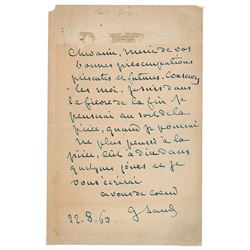 Cher ami, merci de vos
bonnes préoccupations
présentes et futures. Conservez
-les moi. Je suis dans
la fièvre de la fin. Je
penserai au sort de la
pièce, quand je pourrai
ne plus penser à la
pièce, c'est à dire dans
quelques jours et je
vous écrirai
à vous de coeur
G Sand
22. 8. 63